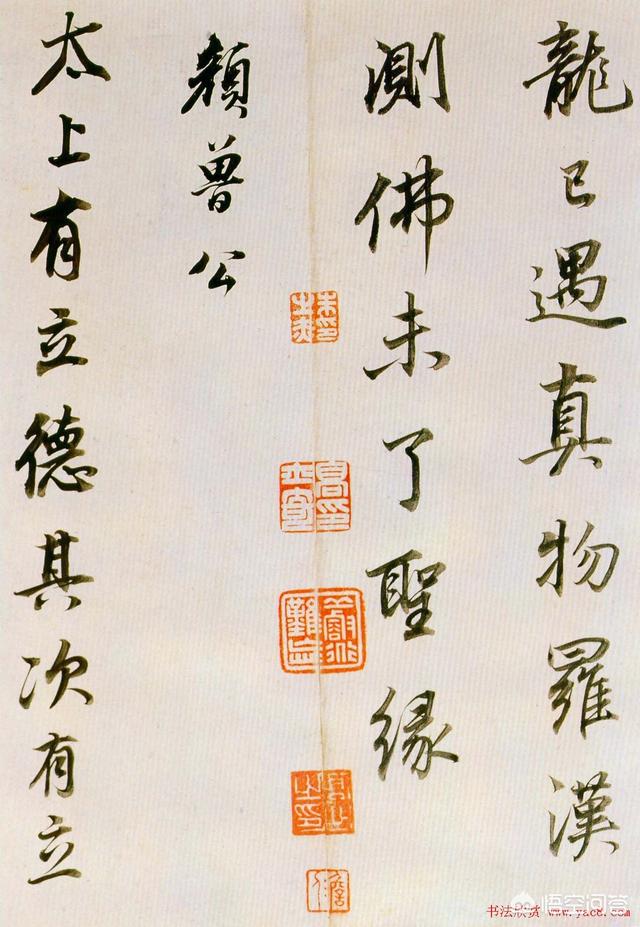 龍已遇真物羅漢
測佛未了聖緣
顏魯公
太上有立德其次有立
悟空问答
书法欣赏 www.yac8.com